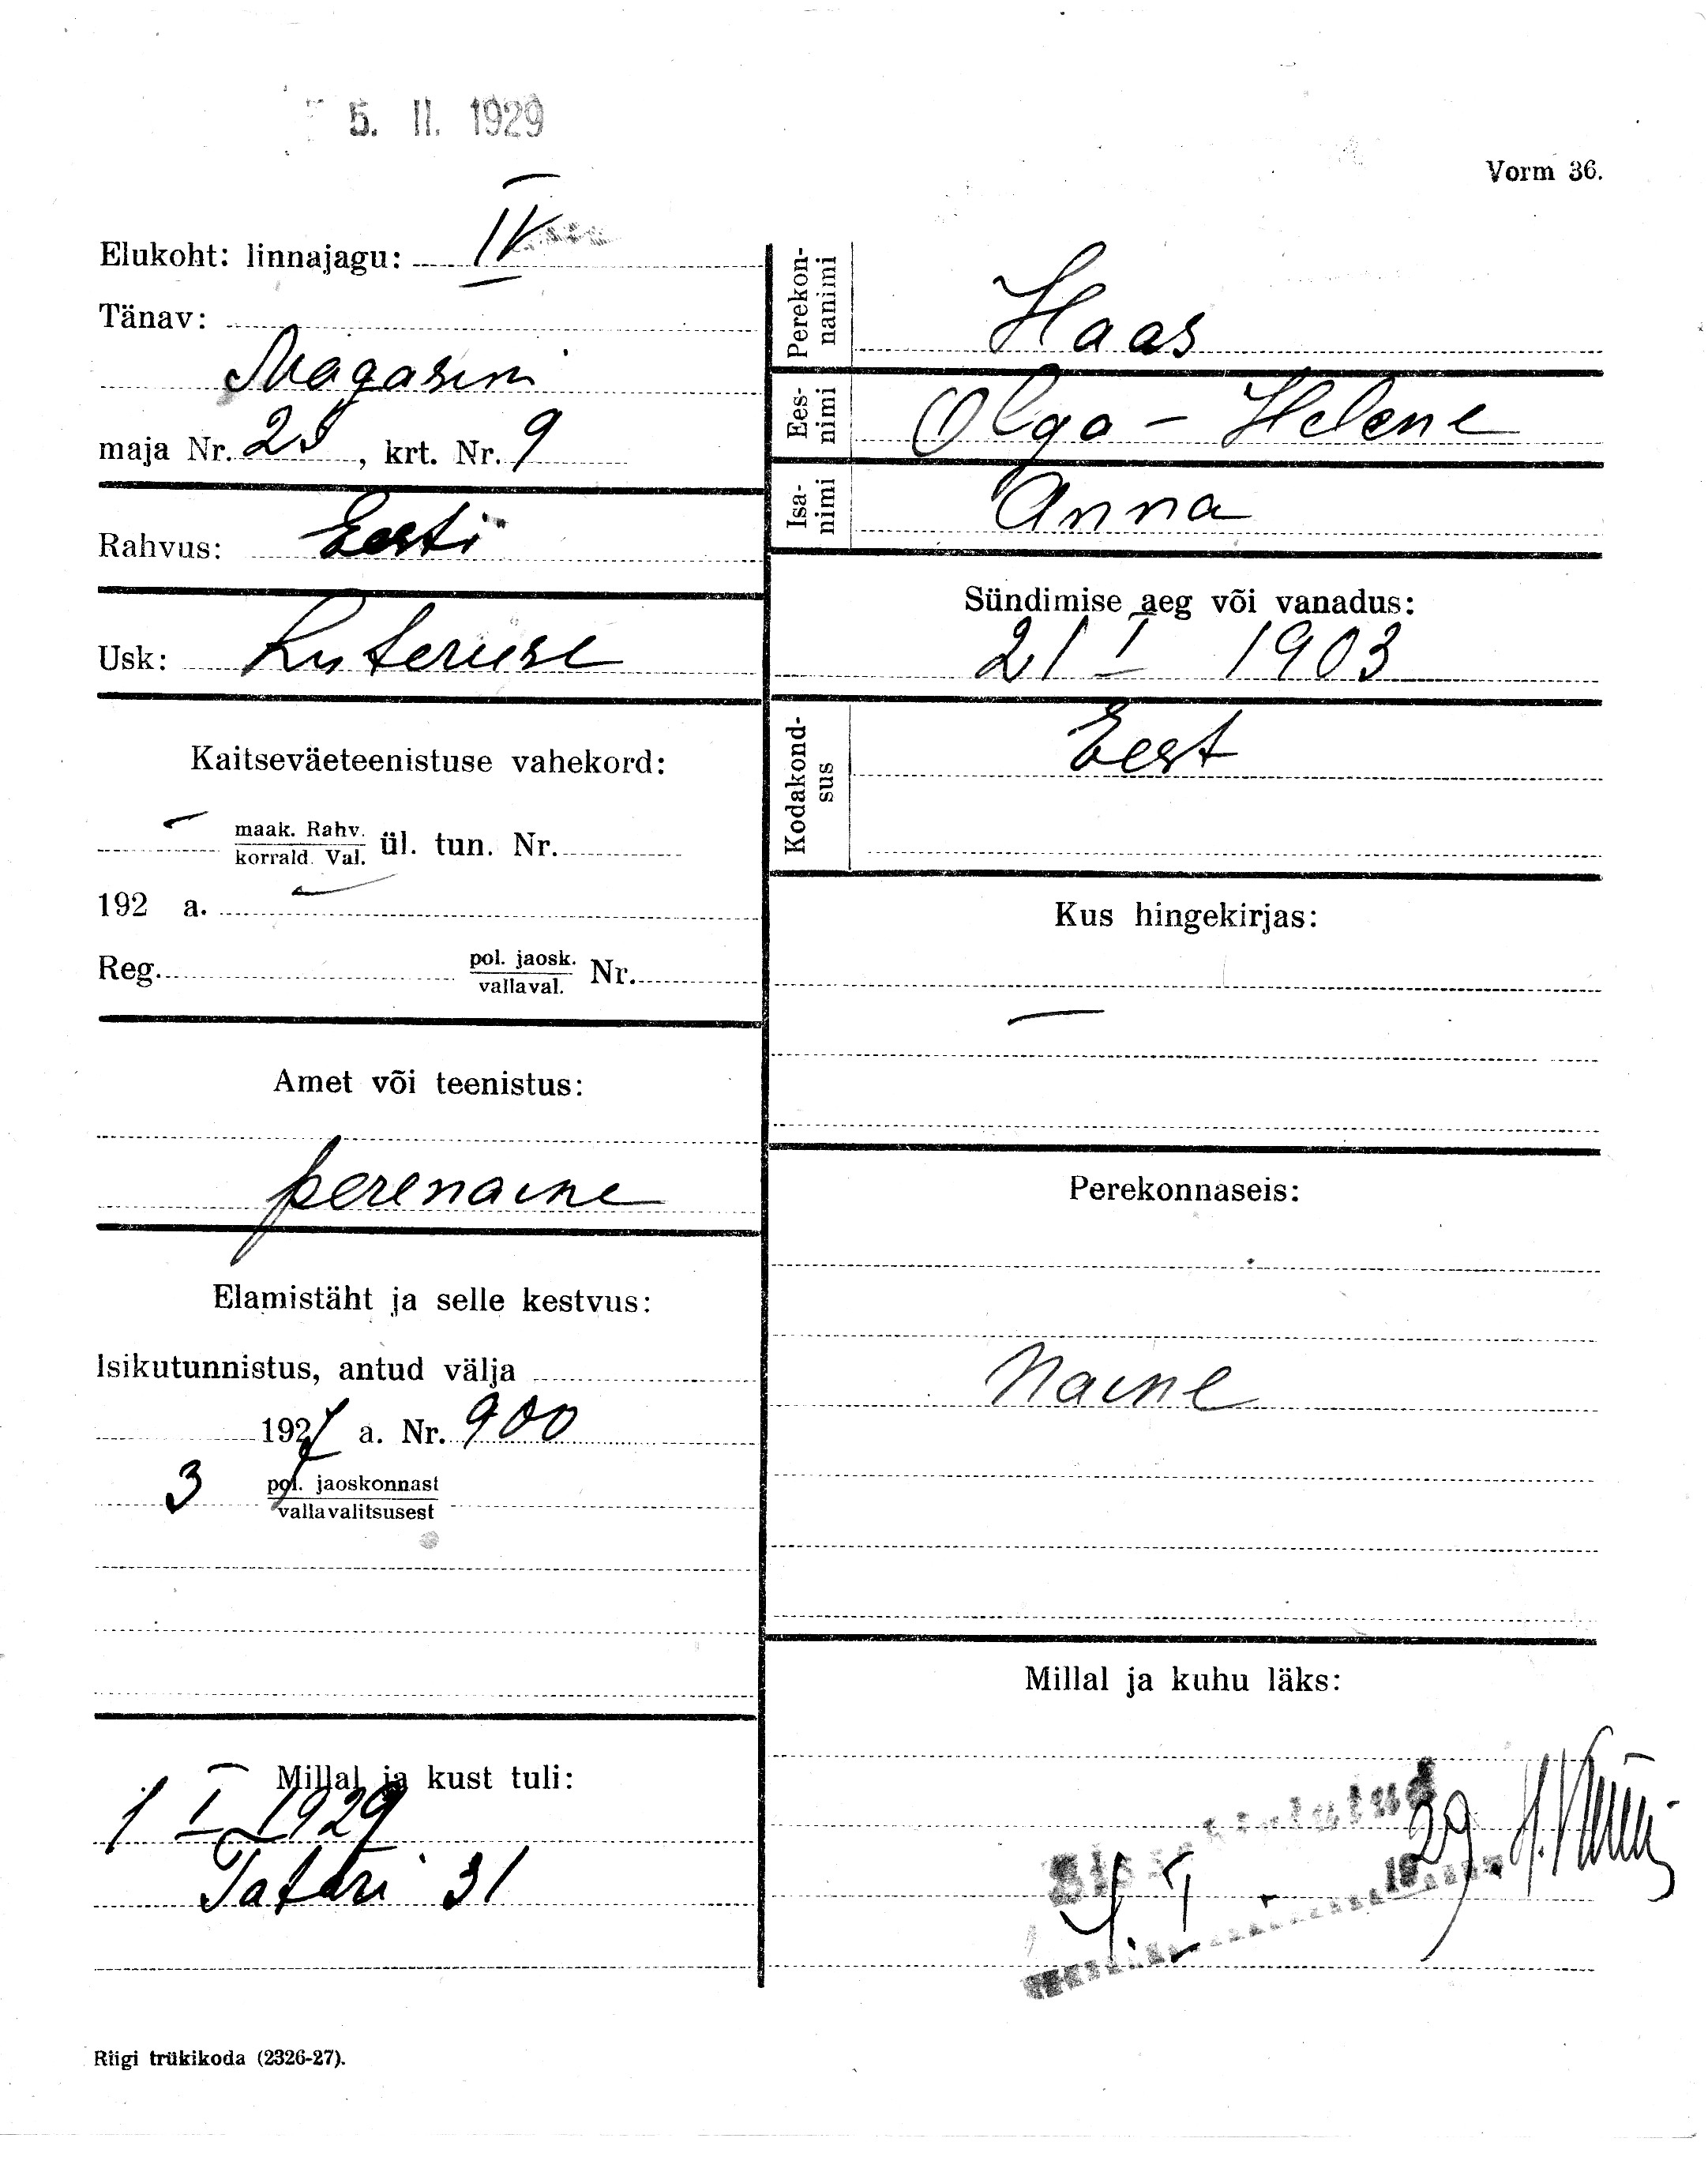 5. II. 1929
Vorm 36.
Elukoht: linnajagu: IV
Tänav:
Magasini
maja Nr. 25, krt. Nr. 9
Rahvus: Eesti
Usk: Luteruse
Kaitseväeteenistuse vahekord:
maak. Rahv.
korrald. Val.
ül. tun. Nr.
192 a.
Reg. pol. jaosk. Nr.
vallaval.
Amet või teenistus:
perenaine
Elamistäht ja selle kestvus:
Isikutunnistus, antud välja
1927 a. Nr. 900
3 pol. jaoskonnast
vallavalitsusest
Millal ja kust tuli:
1 I 1929
Tatari 31
Perekon-
nanimi
Haas
Ees-
nimi
Olga - Helene
Isa-
nimi
Anna
Sündimise aeg või vanadus:
21 I 1903
Kodakond-
sus
Eest
Kus hingekirjas:
—
Perekonnaseis:
Naine
Millal ja kuhu läks:
Riigi trükikoda (2326-27).